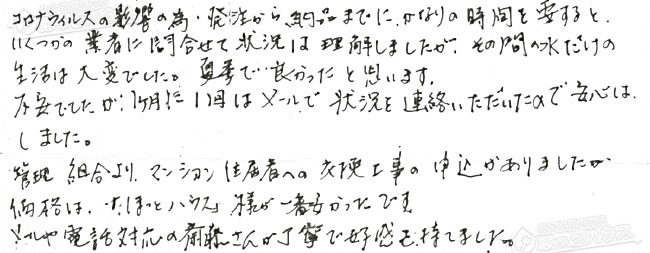 コロナウィルスの影響の為、発注から納品までに、かなりの時間を要すると、
いくつかの業者に問合せて状況は理解しましたが、その間の水だけの
生活は大変でした。夏季で良かったと思います。
不安でしたが、1ヶ月に1回はメールで状況を連絡いただいたので安心は、
しました。
管理組合より、マンション住居者への交換工事の申込がありましたが
価格は、すまいるほっとハウス様が一番安かったです
メールや電話対応の斎藤さんが丁寧で好感を持てました。